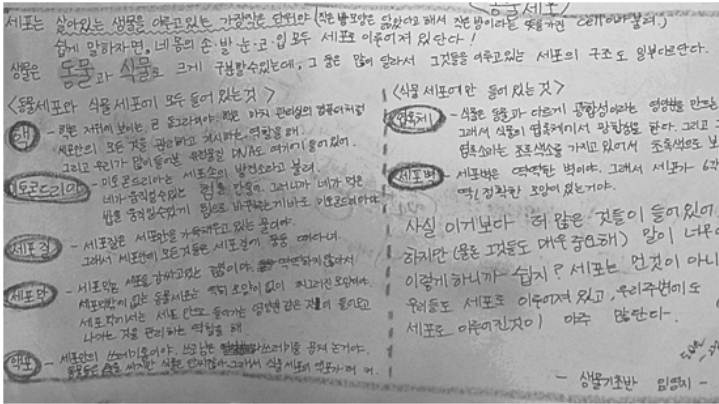 <동물세포>
세포는 살아있는 생물을 이루고 있는 가장작은 단위야 (작은 방모양은 닮았다고 해서 작은방이라는 뜻을가진 cell이라 불러.)
쉽게 말하자면, 네 몸의 손·발·눈·코·입 모두 세포로 이루어져 있단다!
생물은 동물과 식물로 크게 구분할수있는데, 그 둘은 많이 달라서 그것들을 이루고있는 세포의 구조도 일부다르단다.
<동물세포와 식물세포에 모두 들어 있는것>
핵 - 핵은 처럼
세포안의 모든 것을 관리하고 지시하는 역할을 해.
그리고 우리가 많이들어본 유전물질 DNA도 여기에 들어있어.
미토콘드리아 - 미토콘드리아는 세포속의 발전소라고 불려
네가 움직일수있는 힘을 만들어. 그러니까 네가 먹은
밥을 움직일수있게 힘으로 바꿔주는게 바로 미토콘드리아야
세포질 - 세포질은 세포안을 가득채우고 있는 물이야.
그래서 세포안의 모든것들은 세포질에 둥둥 떠다녀.
세포막 - 세포막은 세포를 감싸고있는 막이야. 딱딱하지 않아서
세포벽이 없는 동물세포는 딱히 모양이 없이
세포막에서는 세포 안으로 들어가는 영양분 같은 것이 들어오고
나가는 것을 관리하는 역할을 해.
액포 - 세포안의 쓰레기통이야. 쓰레기를 뭉쳐 논거야.
동물들은 똥을 싸지만 식물은 안싸잖아. 그래서 식물세포의 액포가 더 커.
<식물세포에만 들어 있는것>
엽록체 - 식물은 동물과 다르게 광합성이라는 영양분을 만드는
그래서 식물이 엽록체에서 광합성을 한다. 그리고
엽록소라는 초록색소를 가지고 있어서 초록색으로
세포벽 - 세포벽은 딱딱한 벽이야. 그래서 세포가
딱! 정확한 모양이 있는거야.
사실 이거보다 더 많은 것들이 들어있어
하지만 (물론 그것들도 매우 중요해) 말이 너무
이렇게 하니까 쉽지? 세포는 먼것이 아니
우리들도 세포로 이루어져 있고, 우리주변에도
세포로 이루어진것이 아주 많단다.
- 생물기초반 임영지 -